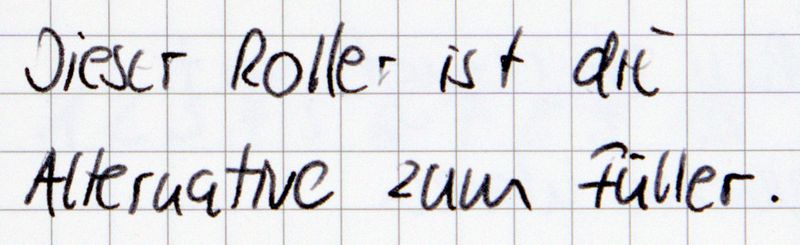 Dieser Roller ist die
Alternative zum Füller.